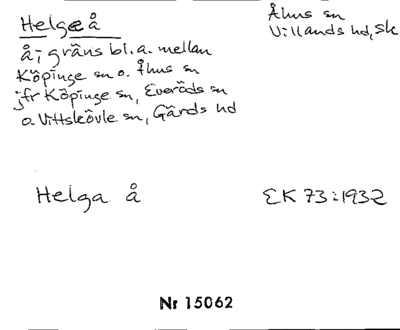 Helge å
Åhus sn
Villands hd, Sk
å; gräns bl.a. mellan
Köpinge sn o. Åhus sn
jfr Köpinge sn, Everöds sn
o. Vittskövle sn, Gärds hd
Helga å
EK 73:1932
Nr 15062